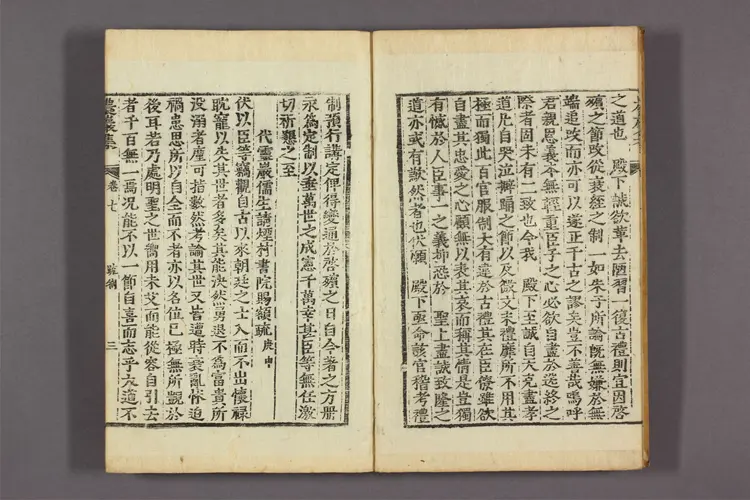 之道也 殿下誠欲革去陋習一復古禮則宜因啓
殯之節改從衰絰之制一如朱子所論旣無嫌於無
端追改而亦可以遂正千古之謬矣豈不善哉嗚呼
君親恩義本無輕重臣子之心必欲自盡於送終之
際者固未有二致也今我 殿下至誠自天克盡孝
道凡自哭泣擗踊之節以及微文末禮靡所不用其
極而獨此百官服制大有違於古禮其在臣僚雖欲
自盡其忠愛之心顧無以表其哀而稱其情是豈獨
有憾於人臣事一之義抑恐於 聖上盡誠致隆之
道亦或有歉然者也伏願 殿下亟命該官稽考禮
制預行講定俾得變通於啓殯之日自今著之方冊
永爲定制以垂萬世之成憲千萬幸甚臣等無任激
切祈懇之至
代靈巖儒生請煙村書院賜額疏 庚申
伏以臣等竊觀自古以來朝廷之士入而不出懷祿
耽寵以失其世者多矣其能決然勇退不爲富貴所
沒溺者廑可指數然考論其世又皆遭時衰亂怵迫
禍患思所以自全而不者亦以名位已極無所覬於
後耳若乃處明聖之世嚮用未艾而能從容自引去
者千百無一焉況能不以一節自喜而志乎大道不
農巖集 卷七 疏箚 三